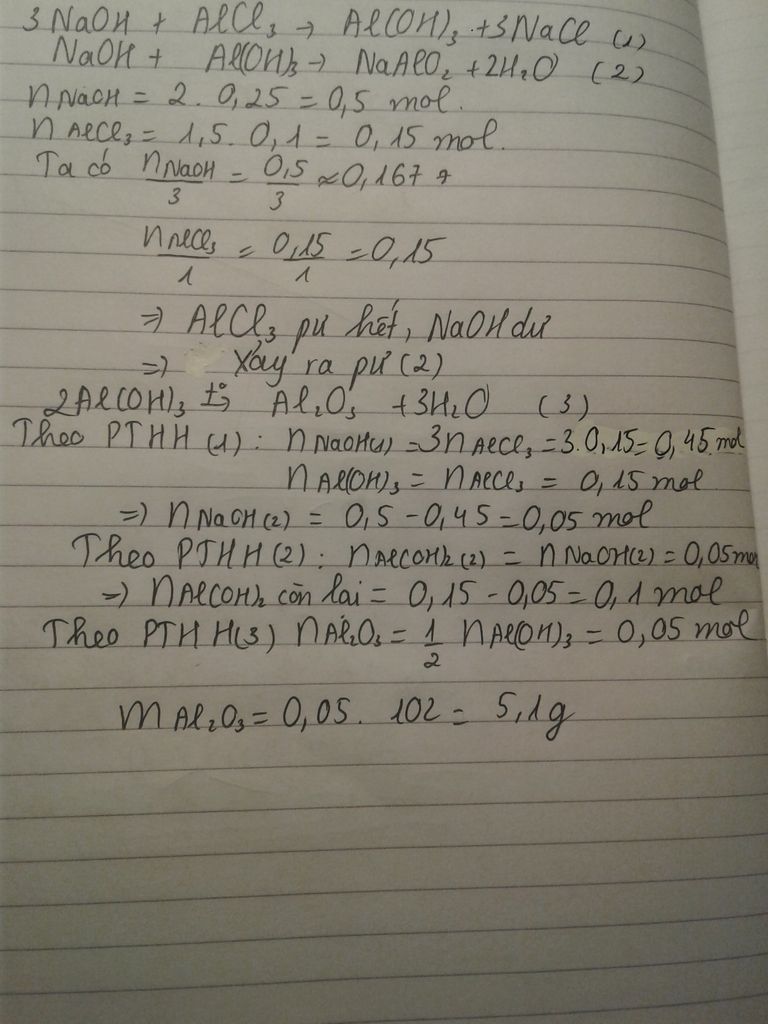 3NaOH + AlCl₃ → Al(OH)₃ + 3NaCl (1)
NaOH + Al(OH)₃ → NaAlO₂ + 2H₂O (2)
nNaOH = 2. 0,25 = 0,5 mol.
nAlCl₃ = 1,5. 0,1 = 0,15 mol.
Ta có nNaOH/3 = 0,5/3 ≈ 0,167
nAlCl₃/1 = 0,15/1 = 0,15
⇒ AlCl₃ pư hết, NaOH dư
⇒ Xảy ra pư (2)
2Al(OH)₃ t°→ Al₂O₃ + 3H₂O (3)
Theo PTHH (1) : nNaOH(1) = 3nAlCl₃ = 3.0,15 = 0,45 mol
nAl(OH)₃ = nAlCl₃ = 0,15 mol
⇒ nNaOH(2) = 0,5 - 0,45 = 0,05 mol
Theo PTHH (2) : nAl(OH)₃(2) = nNaOH(2) = 0,05 mol
⇒ nAl(OH)₃ còn lại = 0,15 - 0,05 = 0,1 mol
Theo PTHH(3) nAl₂O₃ = 1/2 nAl(OH)₃ = 0,05 mol
mAl₂O₃ = 0,05. 102 = 5,1g